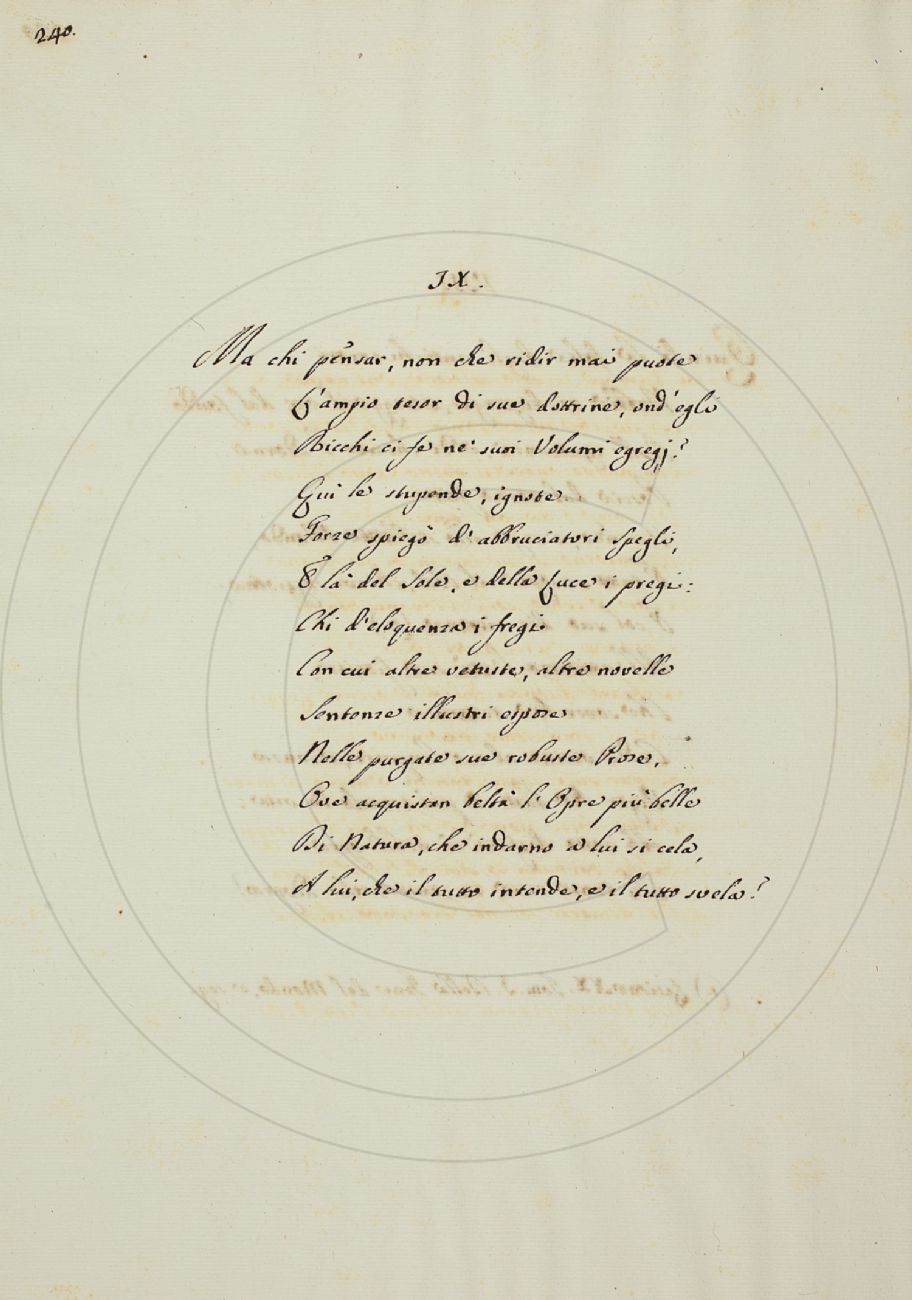 240.
IX.
Ma chi pensar, non che ridir mai puote
L'ampio tesor di sue dottrine, ond'egli
Ricchi ci fe ne' suoi Volumi egregj?
Qui le stupende, ignote
Forze spiegò d'abbruciatori Spegli,
E là del Sole, e della Luce i pregi:
Chi d'eloquenza i fregi
Con cui altre vetuste, altre novelle
Sentenze illustri espose
Nelle purgate sue robuste Prose,
Ove acquistan beltà l'Opre più belle
Di Natura, che indarno a lui si cela,
A lui, che il tutto intende, e il tutto svela?